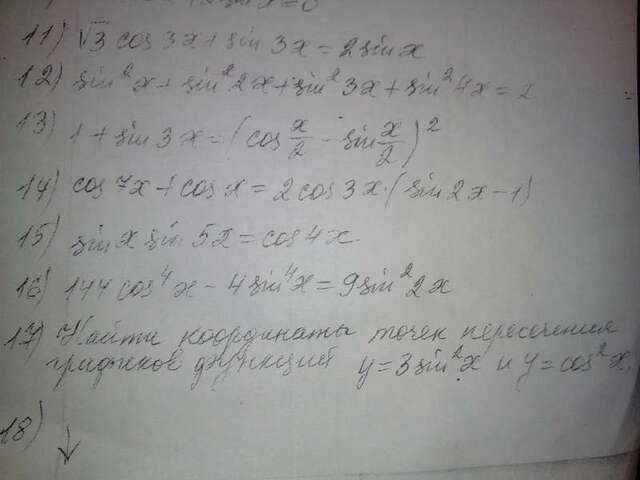 sin x = 0
11) √3 cos 3x + sin 3x = 2 sin x
12) sin²x + sin²2x + sin²3x + sin²4x = 2
13) 1 + sin 3x = (cos x/2 - sin x/2)²
14) cos 7x + cos x = 2 cos 3x · (sin 2x - 1)
15) sin x sin 5x = cos 4x
16) 144 cos⁴x - 4 sin⁴x = 9 sin²2x
17) Найти координаты точек пересечения
графиков функций y = 3 sin²x и y = cos²x.
18)